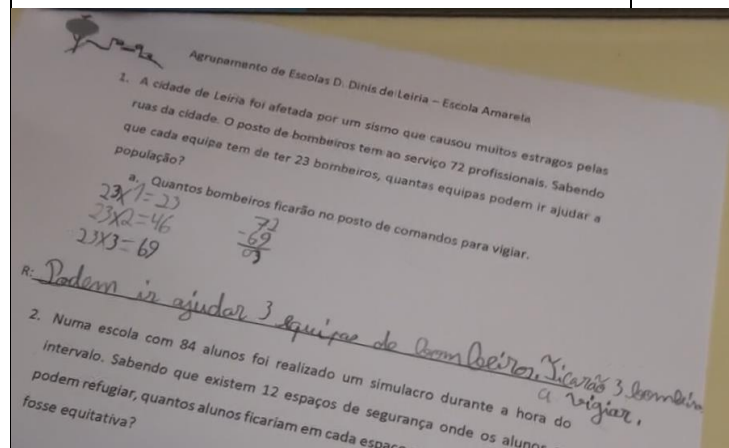 Agrupamento de Escolas D. Dinis de Leiria – Escola Amarela
1. A cidade de Leiria foi afetada por um sismo que causou muitos estragos pelas
ruas da cidade. O posto de bombeiros tem ao serviço 72 profissionais. Sabendo
que cada equipa tem de ter 23 bombeiros, quantas equipas podem ir ajudar a
população?
a. Quantos bombeiros ficarão no posto de comandos para vigiar.
23X1=23
23X2=46
23X3=69
72
-69
03
R: Podem ir ajudar 3 equipas de bombeiros. Ficarão 3 bombeiros
a vigiar.
2. Numa escola com 84 alunos foi realizado um simulacro durante a hora do
intervalo. Sabendo que existem 12 espaços de segurança onde os alunos
podem refugiar, quantos alunos ficariam em cada espaço
fosse equitativa?